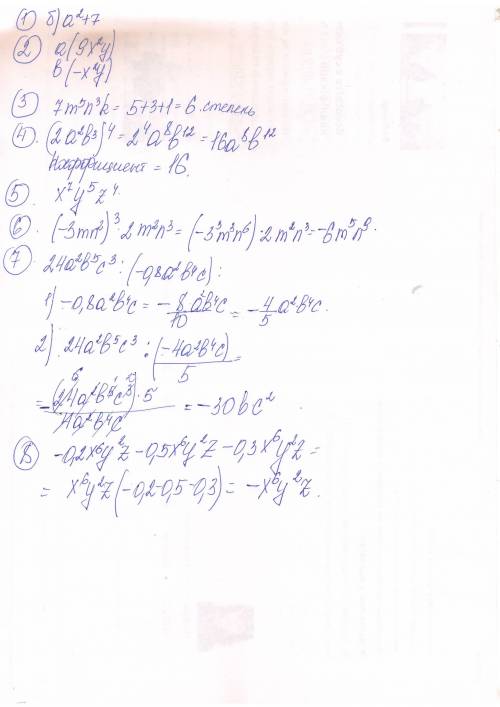 ① б) a²+7
② а (9x²y)
в (-x²y)
③ 7m⁵n³k = 5+3+1 = 6 степень
④ (2a²b³)⁴ = 2⁴a⁸b¹² = 16a⁸b¹²
Коэффициент = 16.
⑤ x⁷y⁵z⁴.
⑥ (-3mn²)³ · 2m²n³ = (-3³m³n⁶) · 2m²n³ = -6m⁵n⁹.
⑦ 24a²b⁵c³ : (-0,8a²b⁴c) :
1) -0,8a²b⁴c = -8a²b⁴c/10 = -4/5 a²b⁴c.
2) 24a²b⁵c³ : (-4a²b⁴c)/5 =
= -(24a²b⁵c³)·5/4a²b⁴c = -30bc²
⑧ -0,2x⁶y²z - 0,5x⁶y²z - 0,3x⁶y²z =
= x⁶y²z(-0,2-0,5-0,3) = -x⁶y²z.